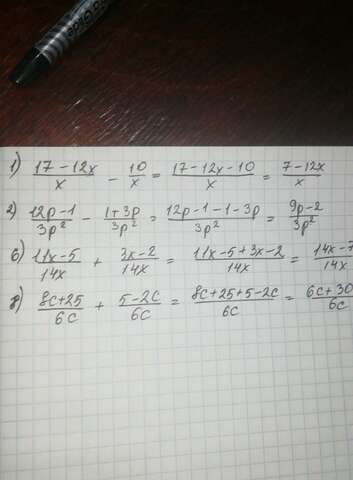 1) (17-12x)/x - 10/x = (17-12x-10)/x = (7-12x)/x
2) (12p-1)/3p² - (1+3p)/3p² = (12p-1-1-3p)/3p² = (9p-2)/3p²
6) (11x-5)/14x + (3x-2)/14x = (11x-5+3x-2)/14x = (14x-7)/14x
8) (8c+25)/6c + (5-2c)/6c = (8c+25+5-2c)/6c = (6c+30)/6c